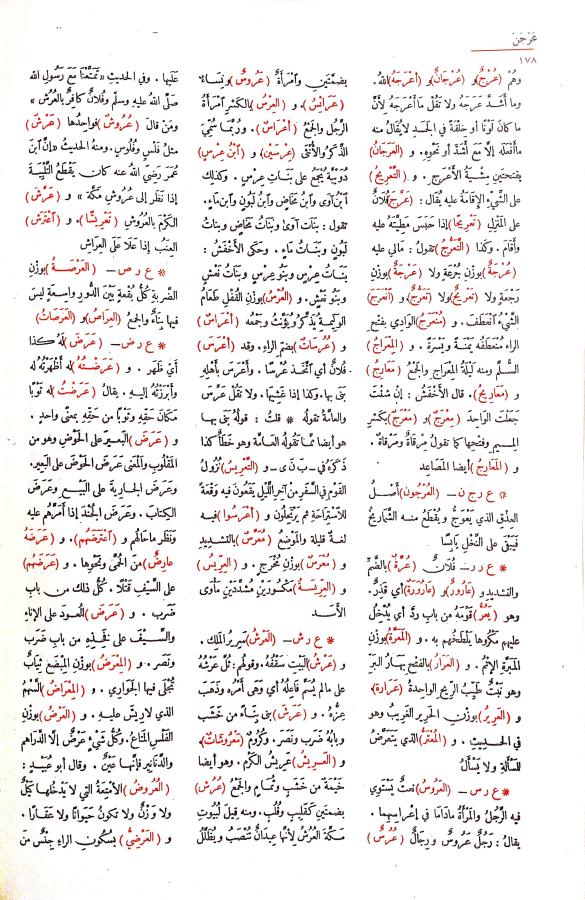 عَرْجَنَ
١٧٨
وهُمْ (عُرْجٌ) و (عُرْجَانٌ) و (أعْرَجَهُ) اللهُ.
وما أشَدَّ عَرَجَهُ ولا تَقُلْ مَا أعْرَجَهُ لأنَّ
ما كانَ لَوْنًا أو خِلْقَةً في الجَسَدِ لا يُقالُ منه
ما أفْعَلَهُ إلاَّ مَعَ أشَدَّ أو نَحْوِه. و (العَرَجَانُ)
بفتحتين مِشْيَةُ الأَعْرَجِ. و (التَّعْرِيجُ)
على الشَّيْءِ الإقَامَةُ عليه يُقَالُ: (عَرَّجَ) فُلَانٌ
على المَنْزِلِ (تَعْرِيجًا) إذا حَبَسَ مَطِيَّتَهُ عليه
وأقَامَ. وكذا (التَّعَرُّجُ) تقولُ: مَالِي عليه
(عُرْجَةٌ) بوزن جُرْعَةٍ ولا (عَرْجَةٌ) بوزن
رَجْعَةٍ ولا (تَعْرِيجٌ) ولا (تَعَرُّجٌ) و (انْعَرَجَ)
الشَّيْءُ انْعَطَفَ. و (مُنْعَرَجُ) الوَادِي بفتح
الراءِ مُنْعَطَفُهُ يَمْنَةً ويَسْرَةً. و (المِعْرَاجُ)
السُّلَّمُ ومنه لَيْلَةُ المِعْرَاجِ والجَمْعُ (مَعَارِجُ)
و (مَعَارِيجُ). قال الأخْفَشُ: إنْ شِئْتَ
جَعَلْتَ الوَاحدَ (مِعْرَجٌ) و (مَعْرَجٌ) بكسرِ
المِيمِ وفتحِها كما تقولُ مِرْقَاةٌ ومَرْقَاةٌ.
و (المَعَارِجُ) أيضا المَصَاعِدُ
* ع ر ج ن — (العُرْجُونُ) أَصْلُ
العِذْقِ الذي يَعْوَجُّ ويُقْطَعُ منه الشَّمَارِيخُ
فَيَبْقَى على النَّخْلِ يَابِسًا
* ع ر ر — فُلَانٌ (عُرَّةٌ) بالضَّمِّ
والتشديدِ و (عَارُورٌ) و (عَارُورَةٌ) أي قَذِرٌ.
وهو (يَعُرُّ) قَوْمَهُ من باب ردَّ أي يُدْخِلُ
عليهم مَكْرُوهًا يَلْطَخُهُم به. و (المَعَرَّةُ) بوزن
المَبَرَّةِ الإِثْمُ. و (العَرَارُ) بالفتح بَهَارُ البَرِّ
وهو نَبْتٌ طَيِّبُ الرِّيحِ الواحدةُ (عَرَارَةٌ)
و (العَرِيرُ) بوزن الحَرِيرِ الغَرِيبُ وهو
في الحديثِ. و (المُعْتَرُّ) الَّذي يَتَعَرَّضُ
لِلْمَسْأَلَةِ ولا يَسْأَلُ
* ع ر س — (العَرُوسُ) نَعْتٌ يَسْتَوِي
فيه الرَّجُلُ والمَرْأَةُ مادَامَا في إعْرَاسِهِما.
يقالُ: رَجُلٌ عَرُوسٌ ورِجَالٌ (عُرُسٌ)
بضمتين وامْرَأَةٌ (عَرُوسٌ) ونِسَاءٌ
(عَرَائِسُ). و (العِرْسُ) بالكسرِ امْرَأَةُ
الرَّجُلِ والجَمْعُ (أَعْرَاسٌ). ورُبَّمَا سُمِّيَ
الذَّكَرُ والأُنْثَى (عِرْسَيْنِ) و (ابْنُ عِرْسٍ)
دُوَيْبَّةٌ يُجْمَعُ على بَنَاتِ عِرْسٍ. وكذلك
ابْنُ آوَى وابنُ مَخَاضٍ وابْنُ لَبُونٍ وابنُ مَاءٍ.
تقول: بنَاتُ آوَى وبنَاتُ مَخَاضٍ وبنَاتُ
لَبُونٍ وبنَاتُ مَاءٍ. وحَكَى الأَخْفَشُ:
بنَاتُ عِرْسٍ وبَنُو عِرْسٍ وبنَاتُ نَعْشٍ
وبنُو نَعْشٍ. و (العُرْسُ) بوزن القُفْلِ طَعَامُ
الوَلِيمَةِ يُذَكَّرُ ويُؤَنَّثُ وجَمْعُه (أَعْرَاسٌ)
و (عُرُسَاتٌ) بضَمِّ الراءِ. وقد (أَعْرَسَ)
فُلَانٌ أي اتَّخَذَ عُرْسًا. وأَعْرَسَ بأَهْلِهِ
بَنَى بها. وكذا إذا غَشِيَهَا. ولا تَقُلْ عَرَّسَ
والعامَّةُ تقولُه * قلتُ: قولُهُ بَنَى بها
هو أيضا مِمَّا تَقُولُه العامَّة وهو خَطَأٌ كَذَا
ذَكَرَهُ في - بَ نَ ى - و (التَّعْرِيسُ) نُزُولُ
القَوْمِ في السَّفَرِ من آخِرِ اللَّيْلِ يَقَعُونَ فيه وَقْعَةً
للاسْتِرَاحَةِ ثم يَرْتَحِلُونَ و (أَعْرَسُوا) فيه
لغةٌ قليلةٌ والمَوْضِعُ (مُعَرَّسٌ) بالتشديدِ
و (مُعْرَسٌ) بوزن مُخْرَجٍ. و (العِرِّيسُ)
و (العِرِّيسَةُ) مكسُورَيْنِ مُشَدَّدَيْنِ مَأْوَى
الأَسَدِ
* ع ر ش — (العَرْشُ) سَرِيرُ المَلِكِ.
و (عَرْشُ) البَيْتِ سَقْفُهُ. وقولهُم: ثُلَّ عَرْشُهُ
على مالم يُسَمَّ فَاعِلُهُ أي وَهَى أَمْرُهُ وذَهَبَ
عِزُّهُ. و (عَرَشَ) بَنَى بِنَاءً من خَشَبٍ
وبابُهُ ضَرَبَ ونَصَرَ. وكُرُومٌ (مَعْرُوشَاتٌ).
و (العَرِيشُ) عَرِيشُ الكَرْمِ. وهو أيضا
خَيْمَةٌ من خَشَبٍ وثُمَامٍ والجَمْعُ (عُرُشٌ)
بضمتينِ كقَلِيبٍ وقُلُبٍ. ومنه قيلَ لبُيُوتِ
مَكَّةَ العُرُشُ لأنَّها عِيدَانٌ تُنْصَبُ ويُظَلَّلُ
عليها. وفي الحديثِ «تَمَتَّعْنَا مَعَ رَسُولِ الله
صَلَّى اللهُ عليه وسلّم وفُلَانٌ كافرٌ بالعُرُشِ»
ومَنْ قالَ (عُرُوشٌ) فواحدُها (عَرْشٌ)
مثلُ فَلْسٍ وفُلُوسٍ. ومنهُ الحديثُ «إنَّ ابنَ
عُمَرَ رَضِيَ اللهُ عنه كان يَقْطَعُ التَّلْبِيَةَ
إذا نَظَرَ إلى عُرُوشِ مَكَّةَ» و (عَرَّشَ)
الكَرْمَ بالعُرُوشِ (تَعْرِيشًا). و (اعْتَرَشَ)
العِنَبُ إذا عَلَا عَلَى العِرَاشِ
* ع ر ص — (العَرْصَةُ) بوزن
الضَّرْبَةِ كُلُّ بُقْعَةٍ بَيْنَ الدُّورِ وَاسِعَةٍ ليسَ
فيها بِنَاءٌ والجَمْعُ (العِرَاصُ) و (العَرَصَاتُ)
* ع ر ض — (عَرَضَ) لَهُ كذا
أيْ ظَهَرَ. و (عَرَضْتُهُ) له أَظْهَرْتُهُ له
وأَبْرَزْتُهُ إليه. يقالُ (عَرَضْتُ) له ثَوْبًا
مَكَانَ حَقِّهِ وثَوْبًا من حَقِّهِ بمعنًى واحدٍ.
و (عَرَضَ) البَعِيرَ على الحَوْضِ وهو من
المَقْلُوبِ والمَعْنَى عَرَضَ الحَوْضَ على البَعِيرِ.
وعَرَضَ الجَارِيَةَ على البَيْعِ وعَرَضَ
الكِتابَ. وعَرَضَ الجُنْدَ إذا أَمَرَّهُم عليه
ونَظَرَ ما حَالُهُم و (اعْتَرَضَهُم). و (عَرَضَهُ
عارِضٌ) من الحُمَّى ونَحْوِها. و (عَرَضَهُم)
على السَّيْفِ قَتْلًا. كُلُّ ذلك من باب
ضَرَبَ. و (عَرَضَ) العُودَ على الإِنَاءِ
والسَّيْفَ على فَخِذِهِ من باب ضَرَبَ
ونَصَرَ. و (المِعْرَضُ) بوزن المِبْضَعِ ثِيَابٌ
تُجْلَى فيها الجَوَارِي. و (المِعْرَاضُ) السَّهْمُ
الذي لا رِيشَ عليه. و (العَرْضُ) بوزن
الفَلْسِ المَتَاعُ. وكُلُّ شَيْءٍ عَرْضٌ إلَّا الدَّرَاهِمَ
والدَّنَانِيرَ فإنَّها عَيْنٌ. وقال أبو عُبَيْدٍ:
(العُرُوضُ) الأَمْتِعَةُ التي لا يَدْخُلُها كَيْلٌ
ولا وَزْنٌ ولا تكونُ حَيَوانًا ولا عَقَارًا.
و (العَرْضِيُّ) بسُكُونِ الراءِ جِنْسٌ منَ